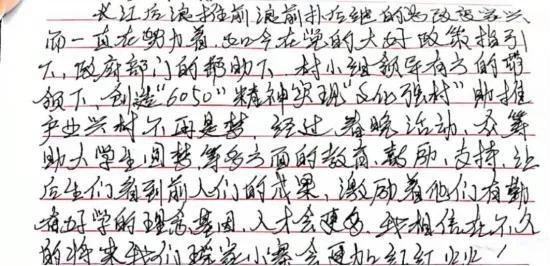 长江后浪推前浪前扑后继的为改变家兴
而一直在努力着，如今在党的大好政策指引
下，政府部门的帮助下，村小组领导有方的带
领下，创造“6050”精神实现“文化强村”助推
产业兴村不再是梦，经过春晚活动，众筹
助大学生圆梦等多方面的教育、鼓励、支持，让
后生们看到前人们的成果，激励着他们有勤
奋好学的理念基因，人才会更多，我相信在不久
的将来我们 家小寨会更加红红火火！